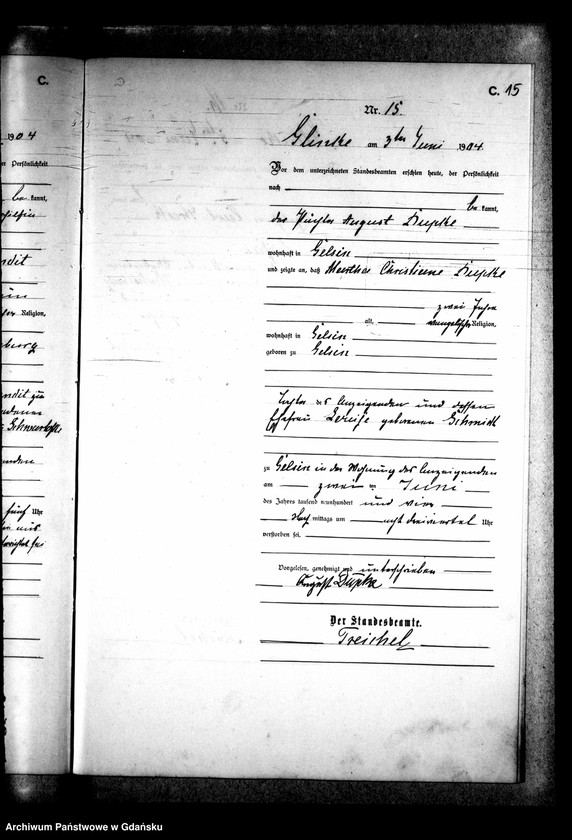 C.
1904
der Persönlichkeit
be kannt,
Religion,
fünf Uhr
C. 15
Nr. 15.
Glincke am 3ten Juni 1904.
Vor dem unterzeichneten Standesbeamten erschien heute, der Persönlichkeit
nach
be kannt,
der Pächter August Dupke
wohnhaft in Gelsin
und zeigte an, daß Martha Christiene Dupke
zwei Jahre
alt, evangelischer Religion,
wohnhaft in Gelsin
geboren zu Gelsin
Tochter des Anzeigenden und dessen
Ehefrau Louise geborenen Schmidt
zu Gelsin in der Wohnung des Anzeigenden
am zwei ten Juni
des Jahres tausend neunhundert und vier
Nach mittags um acht dreiviertel Uhr
verstorben sei.
Vorgelesen, genehmigt und unterschrieben
August Dupke
Der Standesbeamte.
Treichel
Archiwum Państwowe w Gdańsku